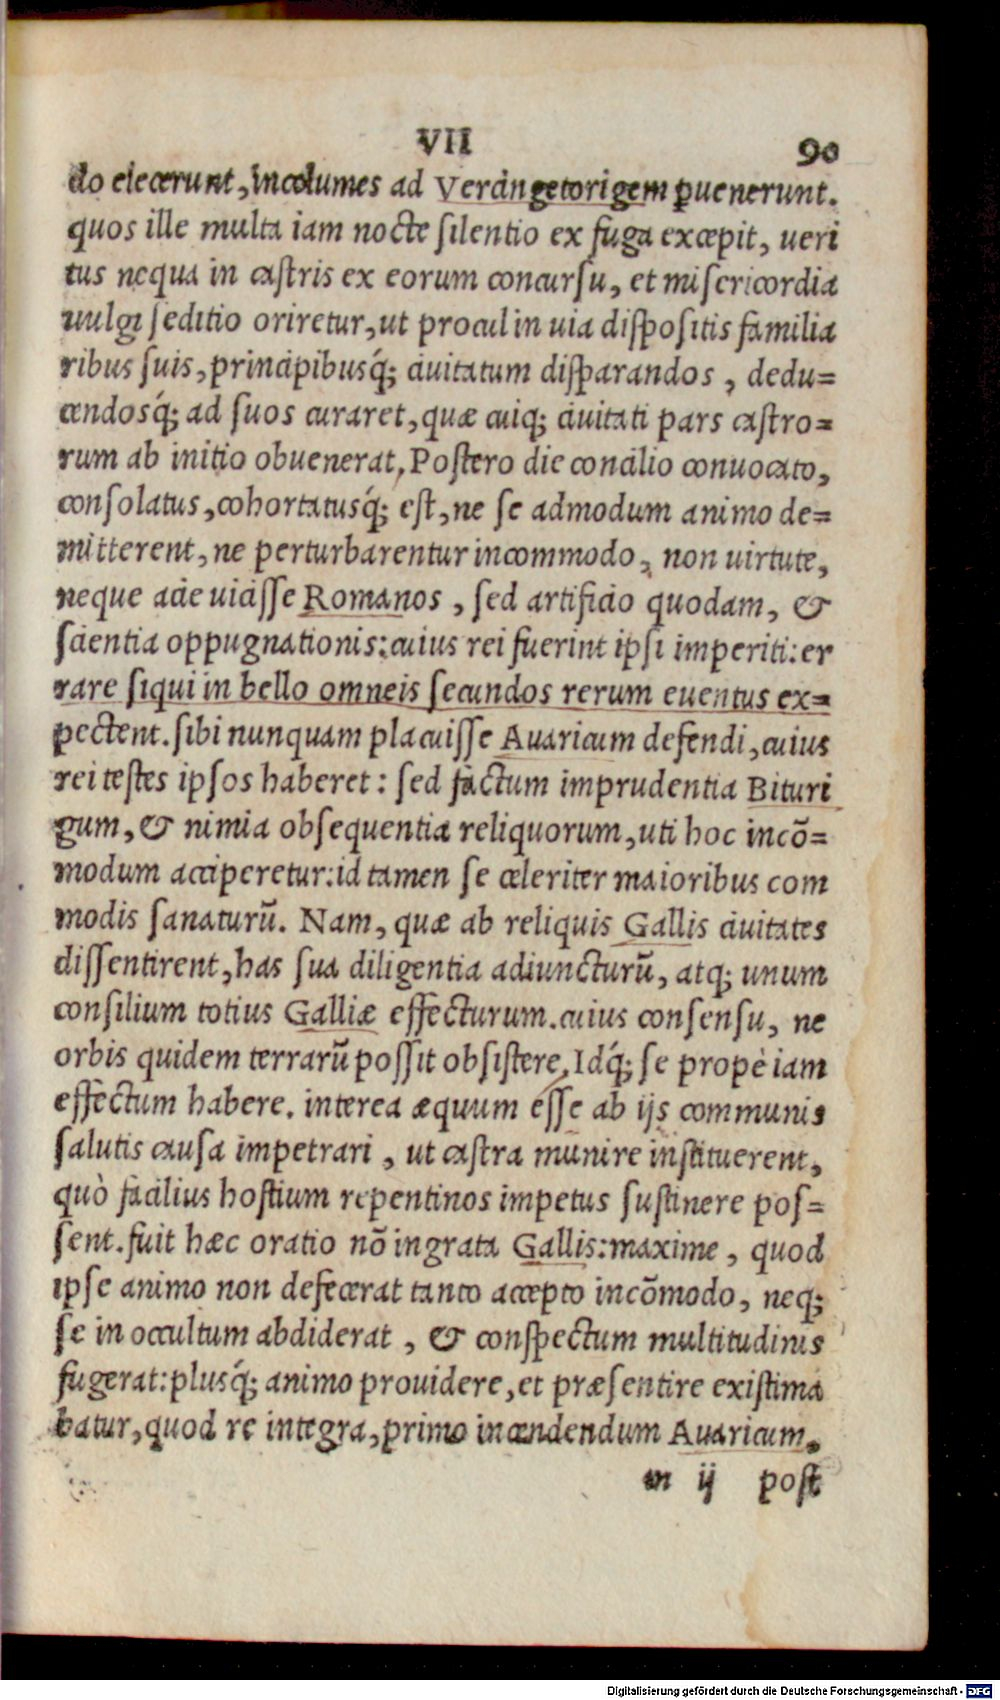 VII 90
do eiecerunt, incolumes ad Vercingetorigem ꝑuenerunt.
quos ille multa iam nocte silentio ex fuga excepit, ueri
tus nequa in castris ex eorum concursu, et misericordia
uulgi seditio oriretur, ut procul in uia dispositis familia
ribus suis, principibusq́; ciuitatum disparandos, dedu=
cendosq́; ad suos curaret, quæ cuiq; ciuitati pars castro=
rum ab initio obuenerat, Postero die concilio conuocato,
consolatus, cohortatusq́; est, ne se admodum animo de=
mitterent, ne perturbarentur incommodo, non uirtute,
neque acie uicisse Romanos, sed artificio quodam, &
scientia oppugnationis: cuius rei fuerint ipsi imperiti: er
rare siqui in bello omneis secundos rerum euentus ex=
pectent. sibi nunquam placuisse Auaricum defendi, cuius
rei testes ipsos haberet: sed factum imprudentia Bituri
gum, & nimia obsequentia reliquorum, uti hoc incō=
modum acciperetur: id tamen se celeriter maioribus com
modis sanaturū. Nam, quæ ab reliquis Gallis ciuitates
dissentirent, has sua diligentia adiuncturū, atq; unum
consilium totius Galliæ effecturum. cuius consensu, ne
orbis quidem terrarū possit obsistere, Idq́; se propè iam
effectum habere. interea æquum esse ab ijs communis
salutis causa impetrari, ut castra munire instituerent,
quò facilius hostium repentinos impetus sustinere pos=
sent. fuit hæc oratio nō ingrata Gallis: maxime, quod
ipse animo non defecerat tanto accepto incōmodo, neq;
se in occultum abdiderat, & conspectum multitudinis
fugerat: plusq́; animo prouidere, et præsentire existima
batur, quod re integra, primo incendendum Auaricum,
m ij post
Digitalisierung gefördert durch die Deutsche Forschungsgemeinschaft - DFG